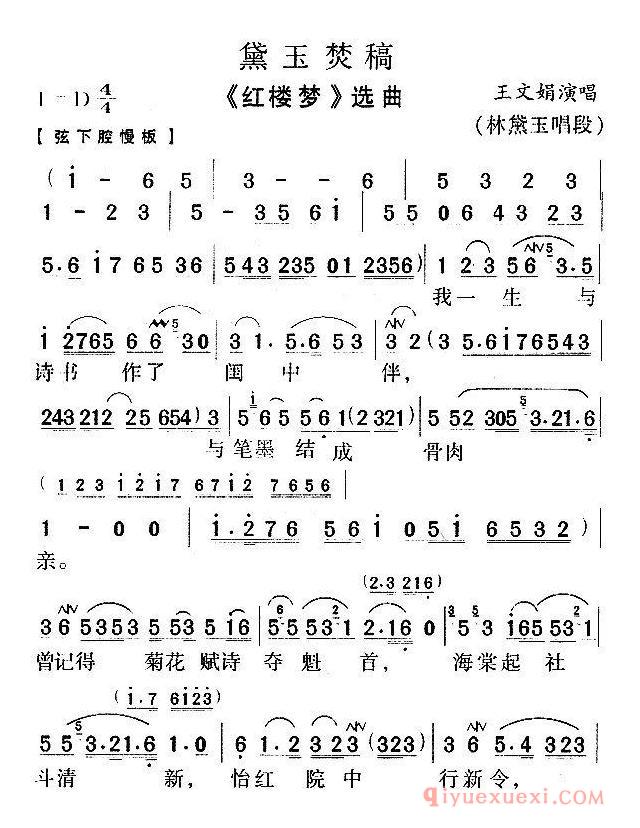 黛玉焚稿
(1-1) 4/4 《红楼梦》选曲 王文娟演唱
(林黛玉唱段)
【弦下腔慢板】
(i - 6 5 | 3 - - 6 | 5 3 2 3 |
1 - 2 3 | 5 - 35 6i | 55 06 43 23 |
5.6 i7 65 36 | 543 235 01 2356) | 1 23 56 3.5 |
我一生与
i 2765 6 6 30 | 3 1. 5.6 53 | 3 2 (3 5.6i76543 |
诗书作了闺中伴,
243 212 25 654) 3 | 5 65 56 1(2 321) | 5 52 305 3.21.6 |
与笔墨结成骨肉
(123 i217 6i27 7656
1 - 0 0 | i.276 56i 05i 6532) |
亲。
(2.3 216)
36 5353 553 5i6 | 5.5 531 2.16 0 | 3 5 i65 531 |
曾记得菊花赋诗夺魁首,海棠起社
(i.7 6i23)
5 5 3.21.6 1.0 | 6 1.2 323 (323) | 36 5.4 323 |
斗清新,怡红院中行新令,
qiyuexuexi.com